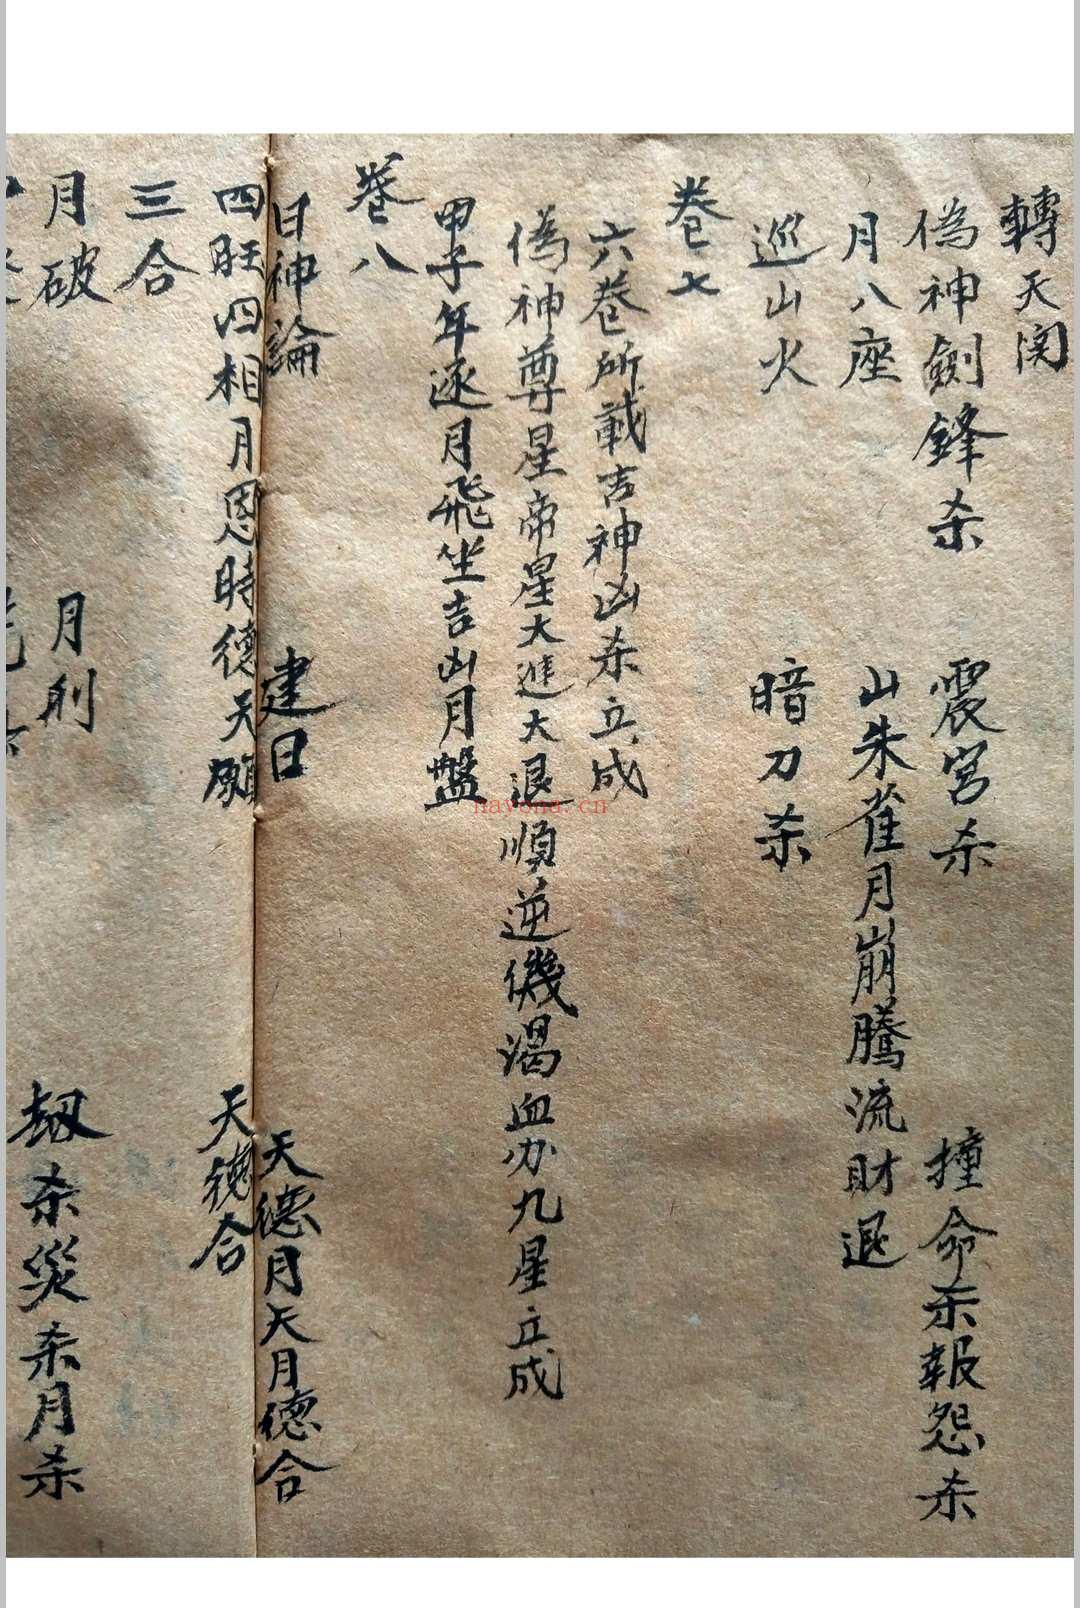 轉天関
偽神劍鋒杀 震宮杀 撞命杀報怨杀
月八座 山朱雀月崩騰流財退
巡山火 暗刀杀
卷七
六卷所載吉神凶杀立成
偽神尊星帝星大進大退順逆機渴血刃九星立成
甲子年逐月飛坐吉凶月盤
卷八
日神論 建日 天德月天月德合
四旺四相月恩時德天願 天德合
三合
月破 月刑 劫杀災杀月杀
nayona.cn